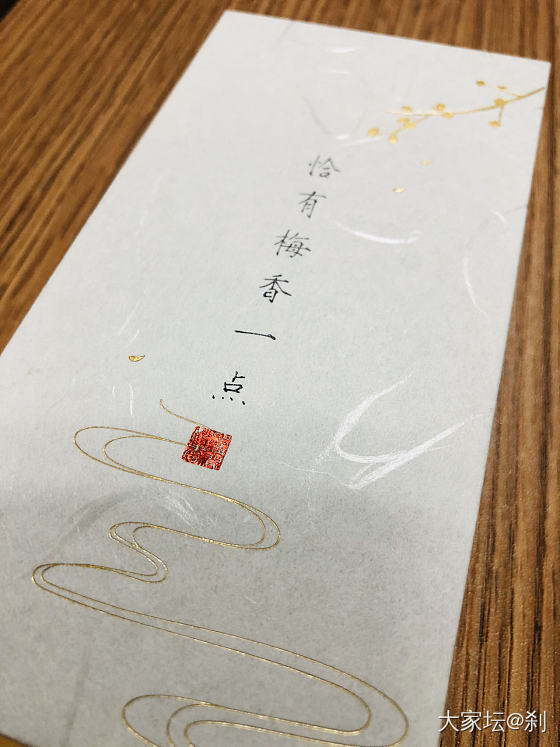 恰有梅香一点
大家坛@刹